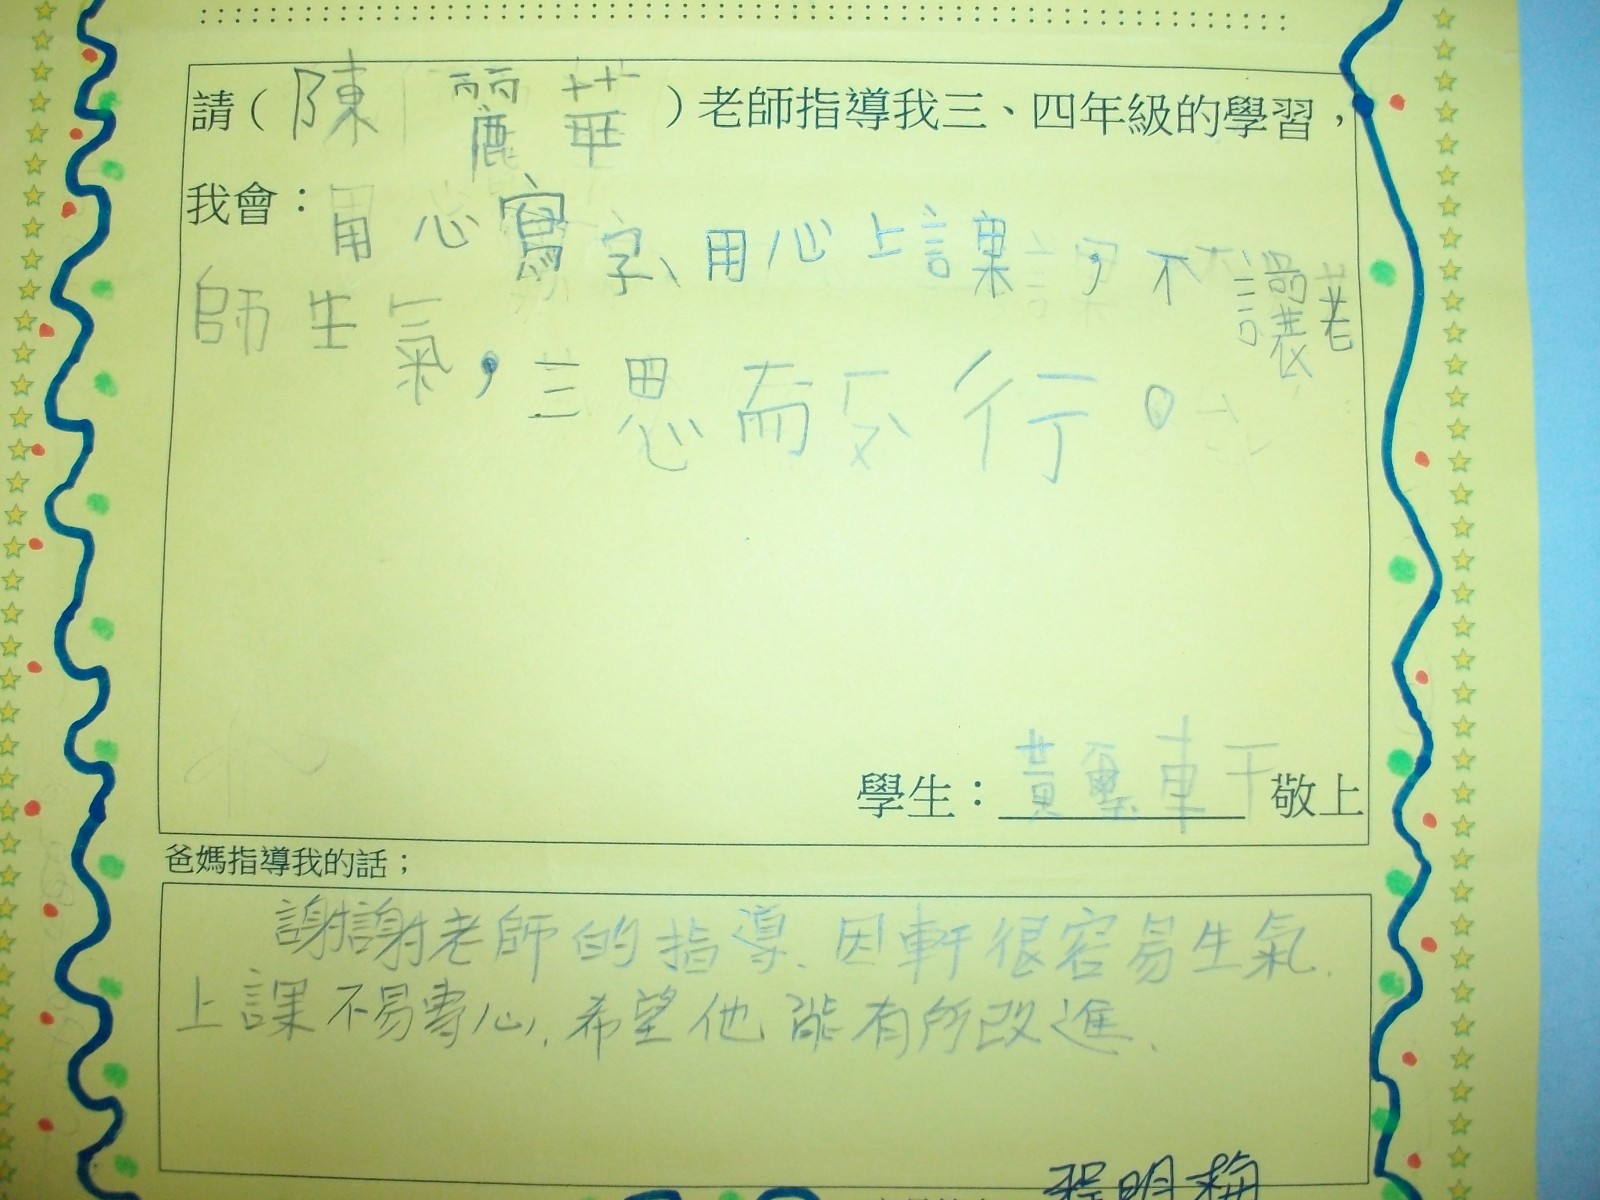 請（陳麗華）老師指導我三、四年級的學習，
我會：用心寫字、用心上課，不讓老
師生氣，三思而后行。
學生：黃璽軒敬上
爸媽指導我的話；
謝謝老師的指導、因軒很容易生氣、
上課不易專心、希望他能有所改進、
程明梅